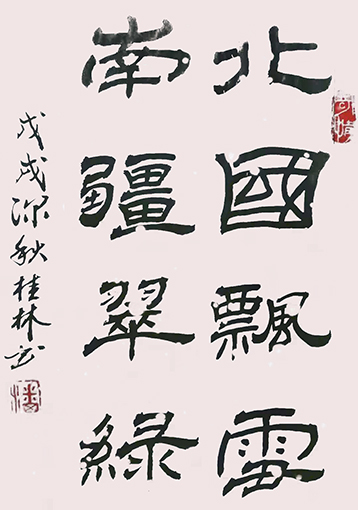 北國飄雪
南疆翠綠
戊戌深秋桂林书